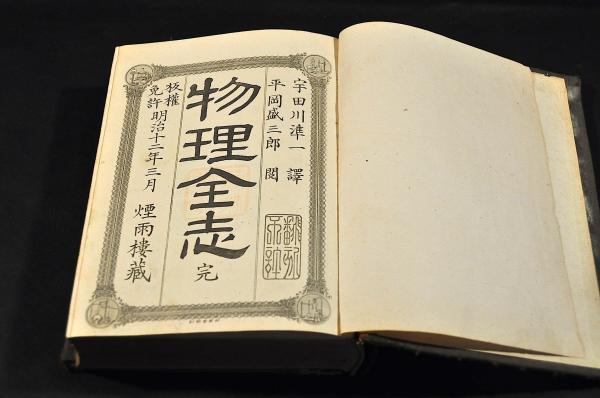 宇田川準一 譯
平岡盛三郎 閲
物理全志 完
版權免許 明治十二年三月 煙雨樓藏